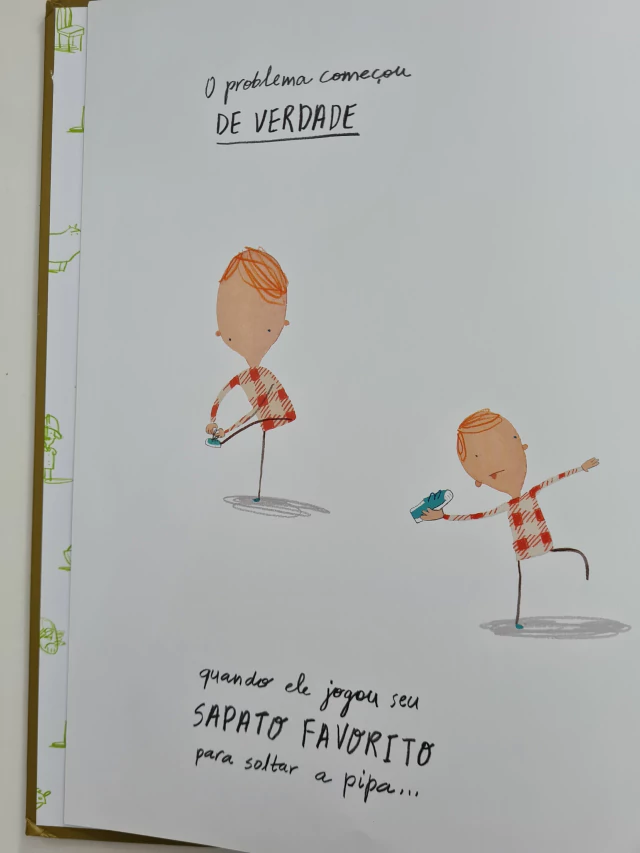 O problema começou
DE VERDADE
quando ele jogou seu
SAPATO FAVORITO
para soltar a pipa...